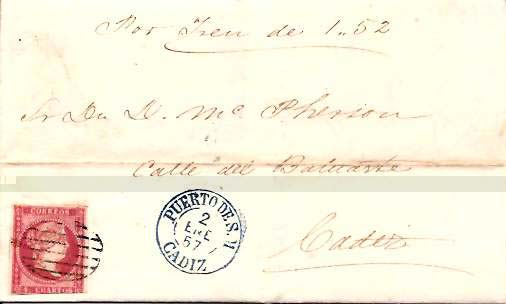 Por Tren de 1..52
Sr Dn D. Mc Pherson
Calle del Baluarte
Cadiz
CORREOS
4 CUARTOS
PUERTO DE S. M.
2
ENE
57
CADIZ